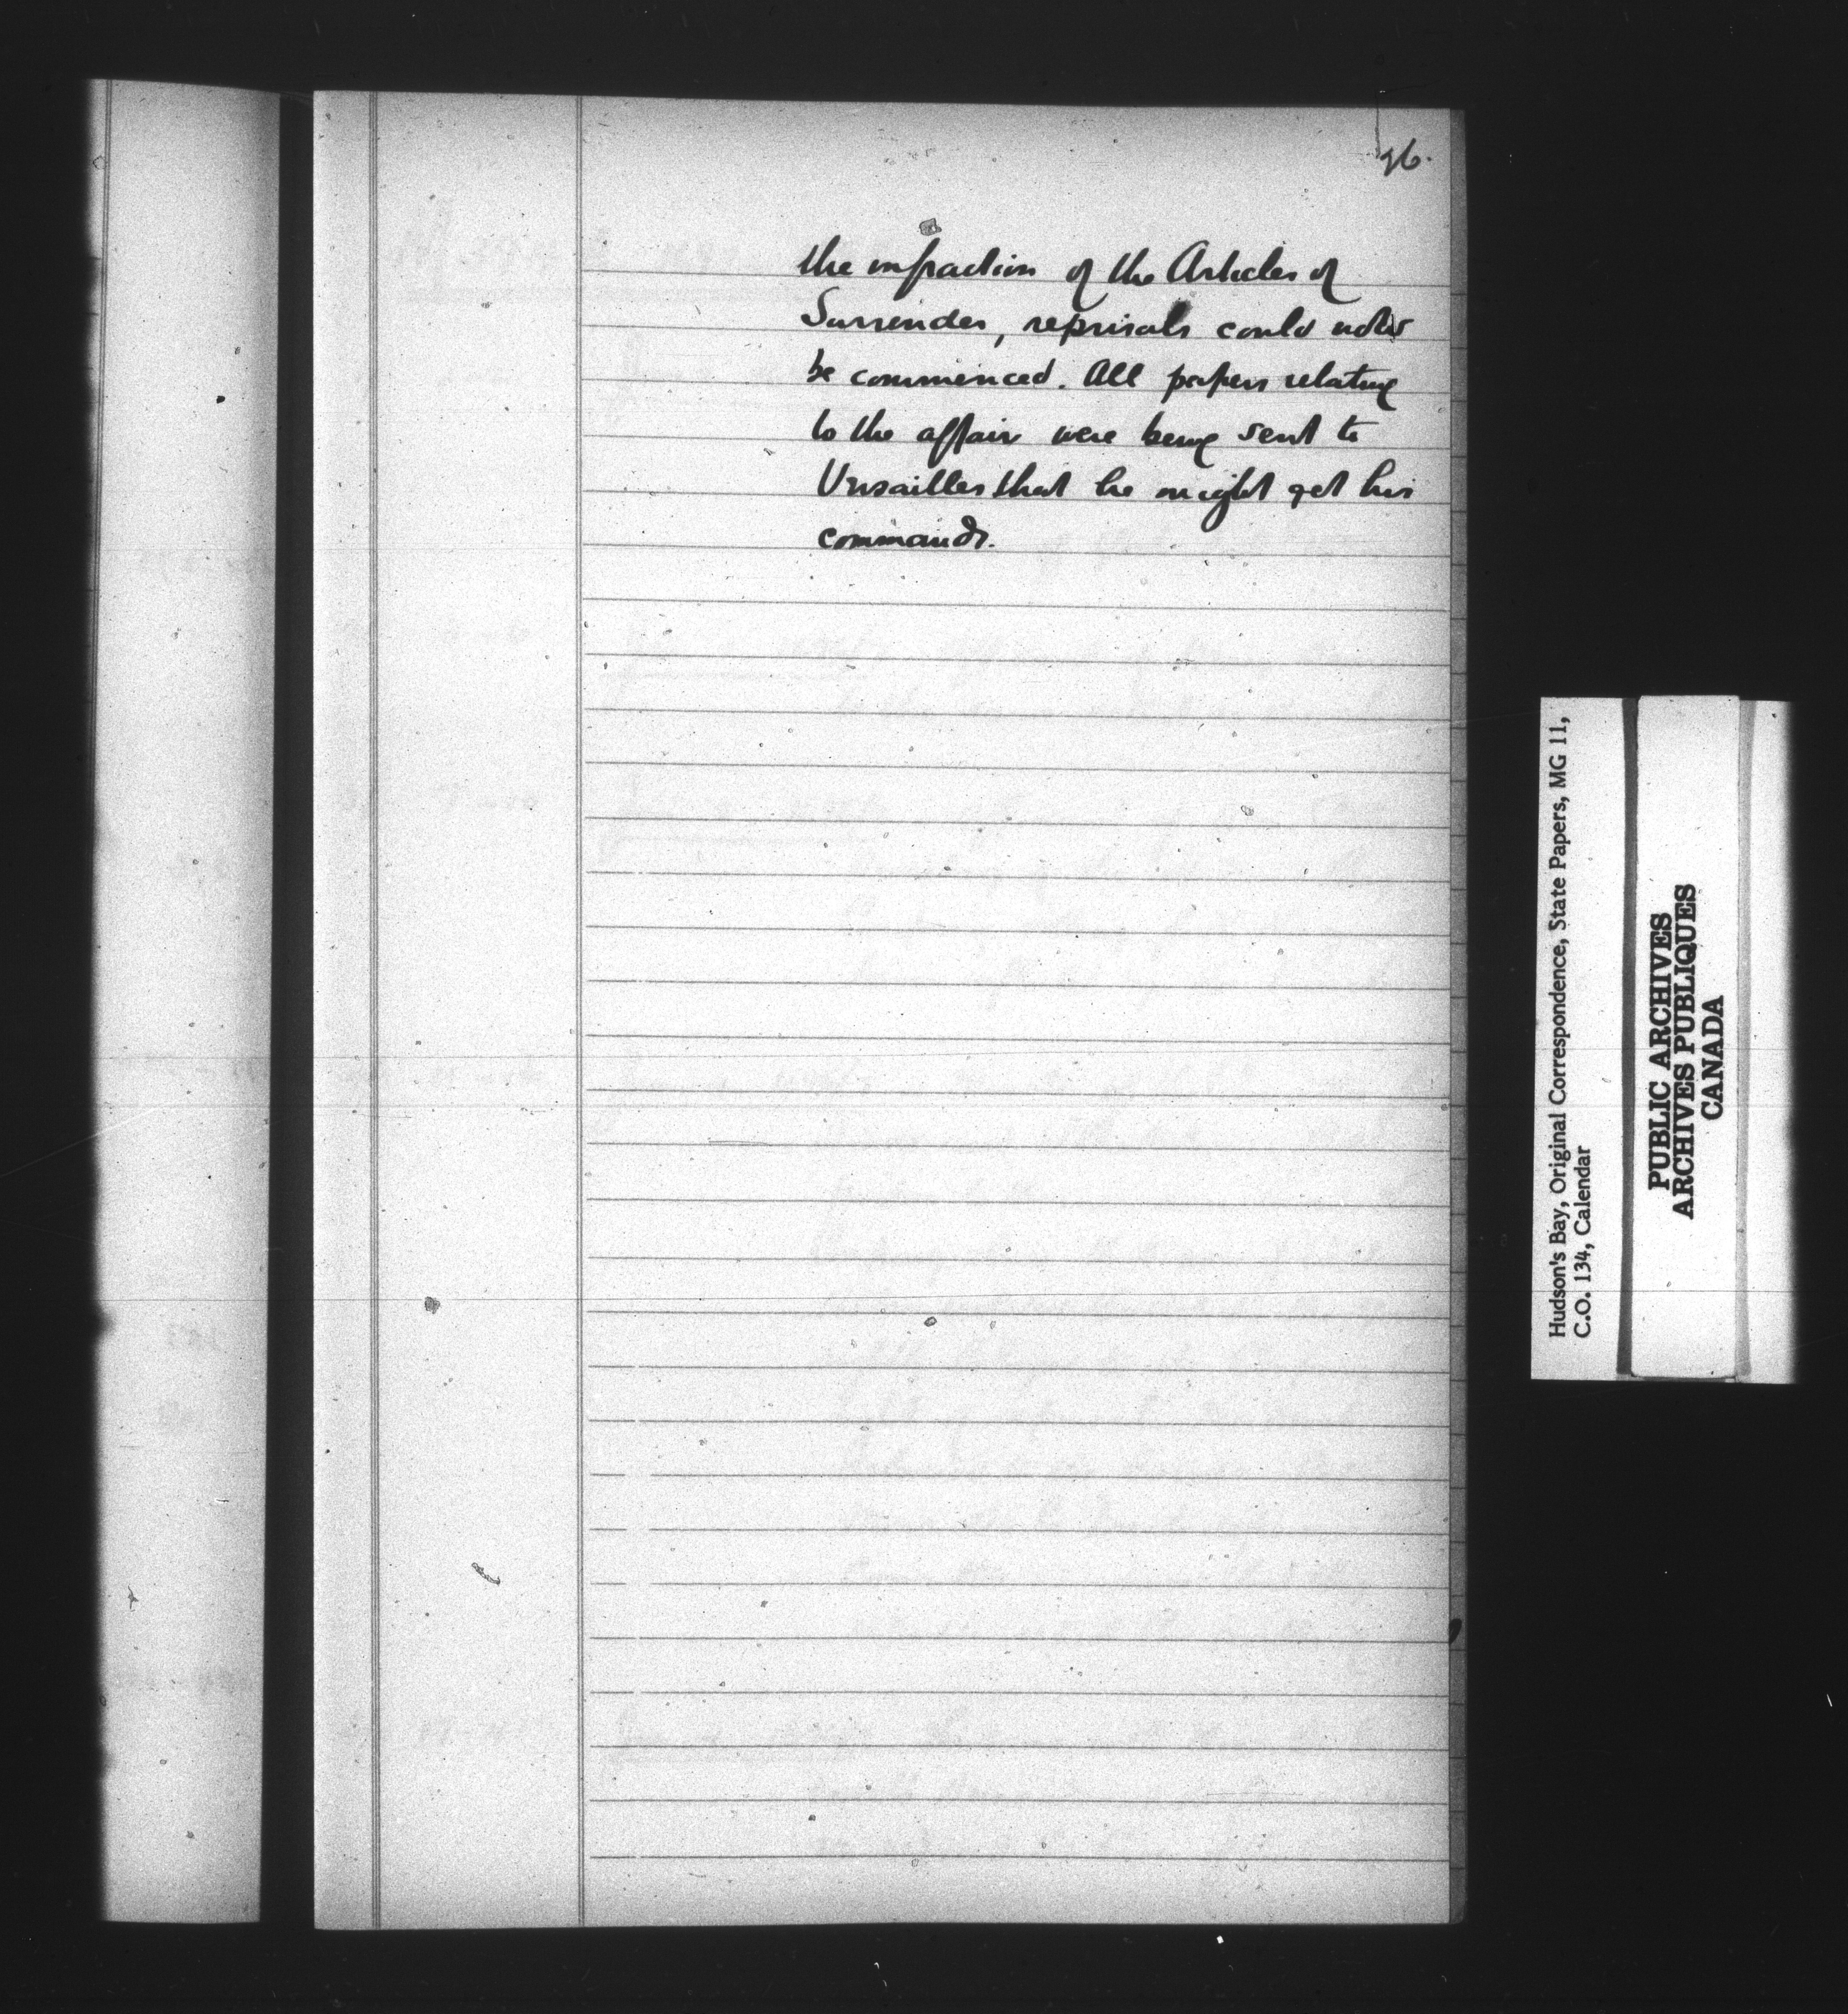 96.
the infraction of the Articles of
Surrender, reprisals could now
be commenced. All papers relating
to the affair were being sent to
Versailles that he might get his
commands.
Hudson's Bay, Original Correspondence, State Papers, MG 11,
C.O. 134, Calendar
PUBLIC ARCHIVES
ARCHIVES PUBLIQUES
CANADA